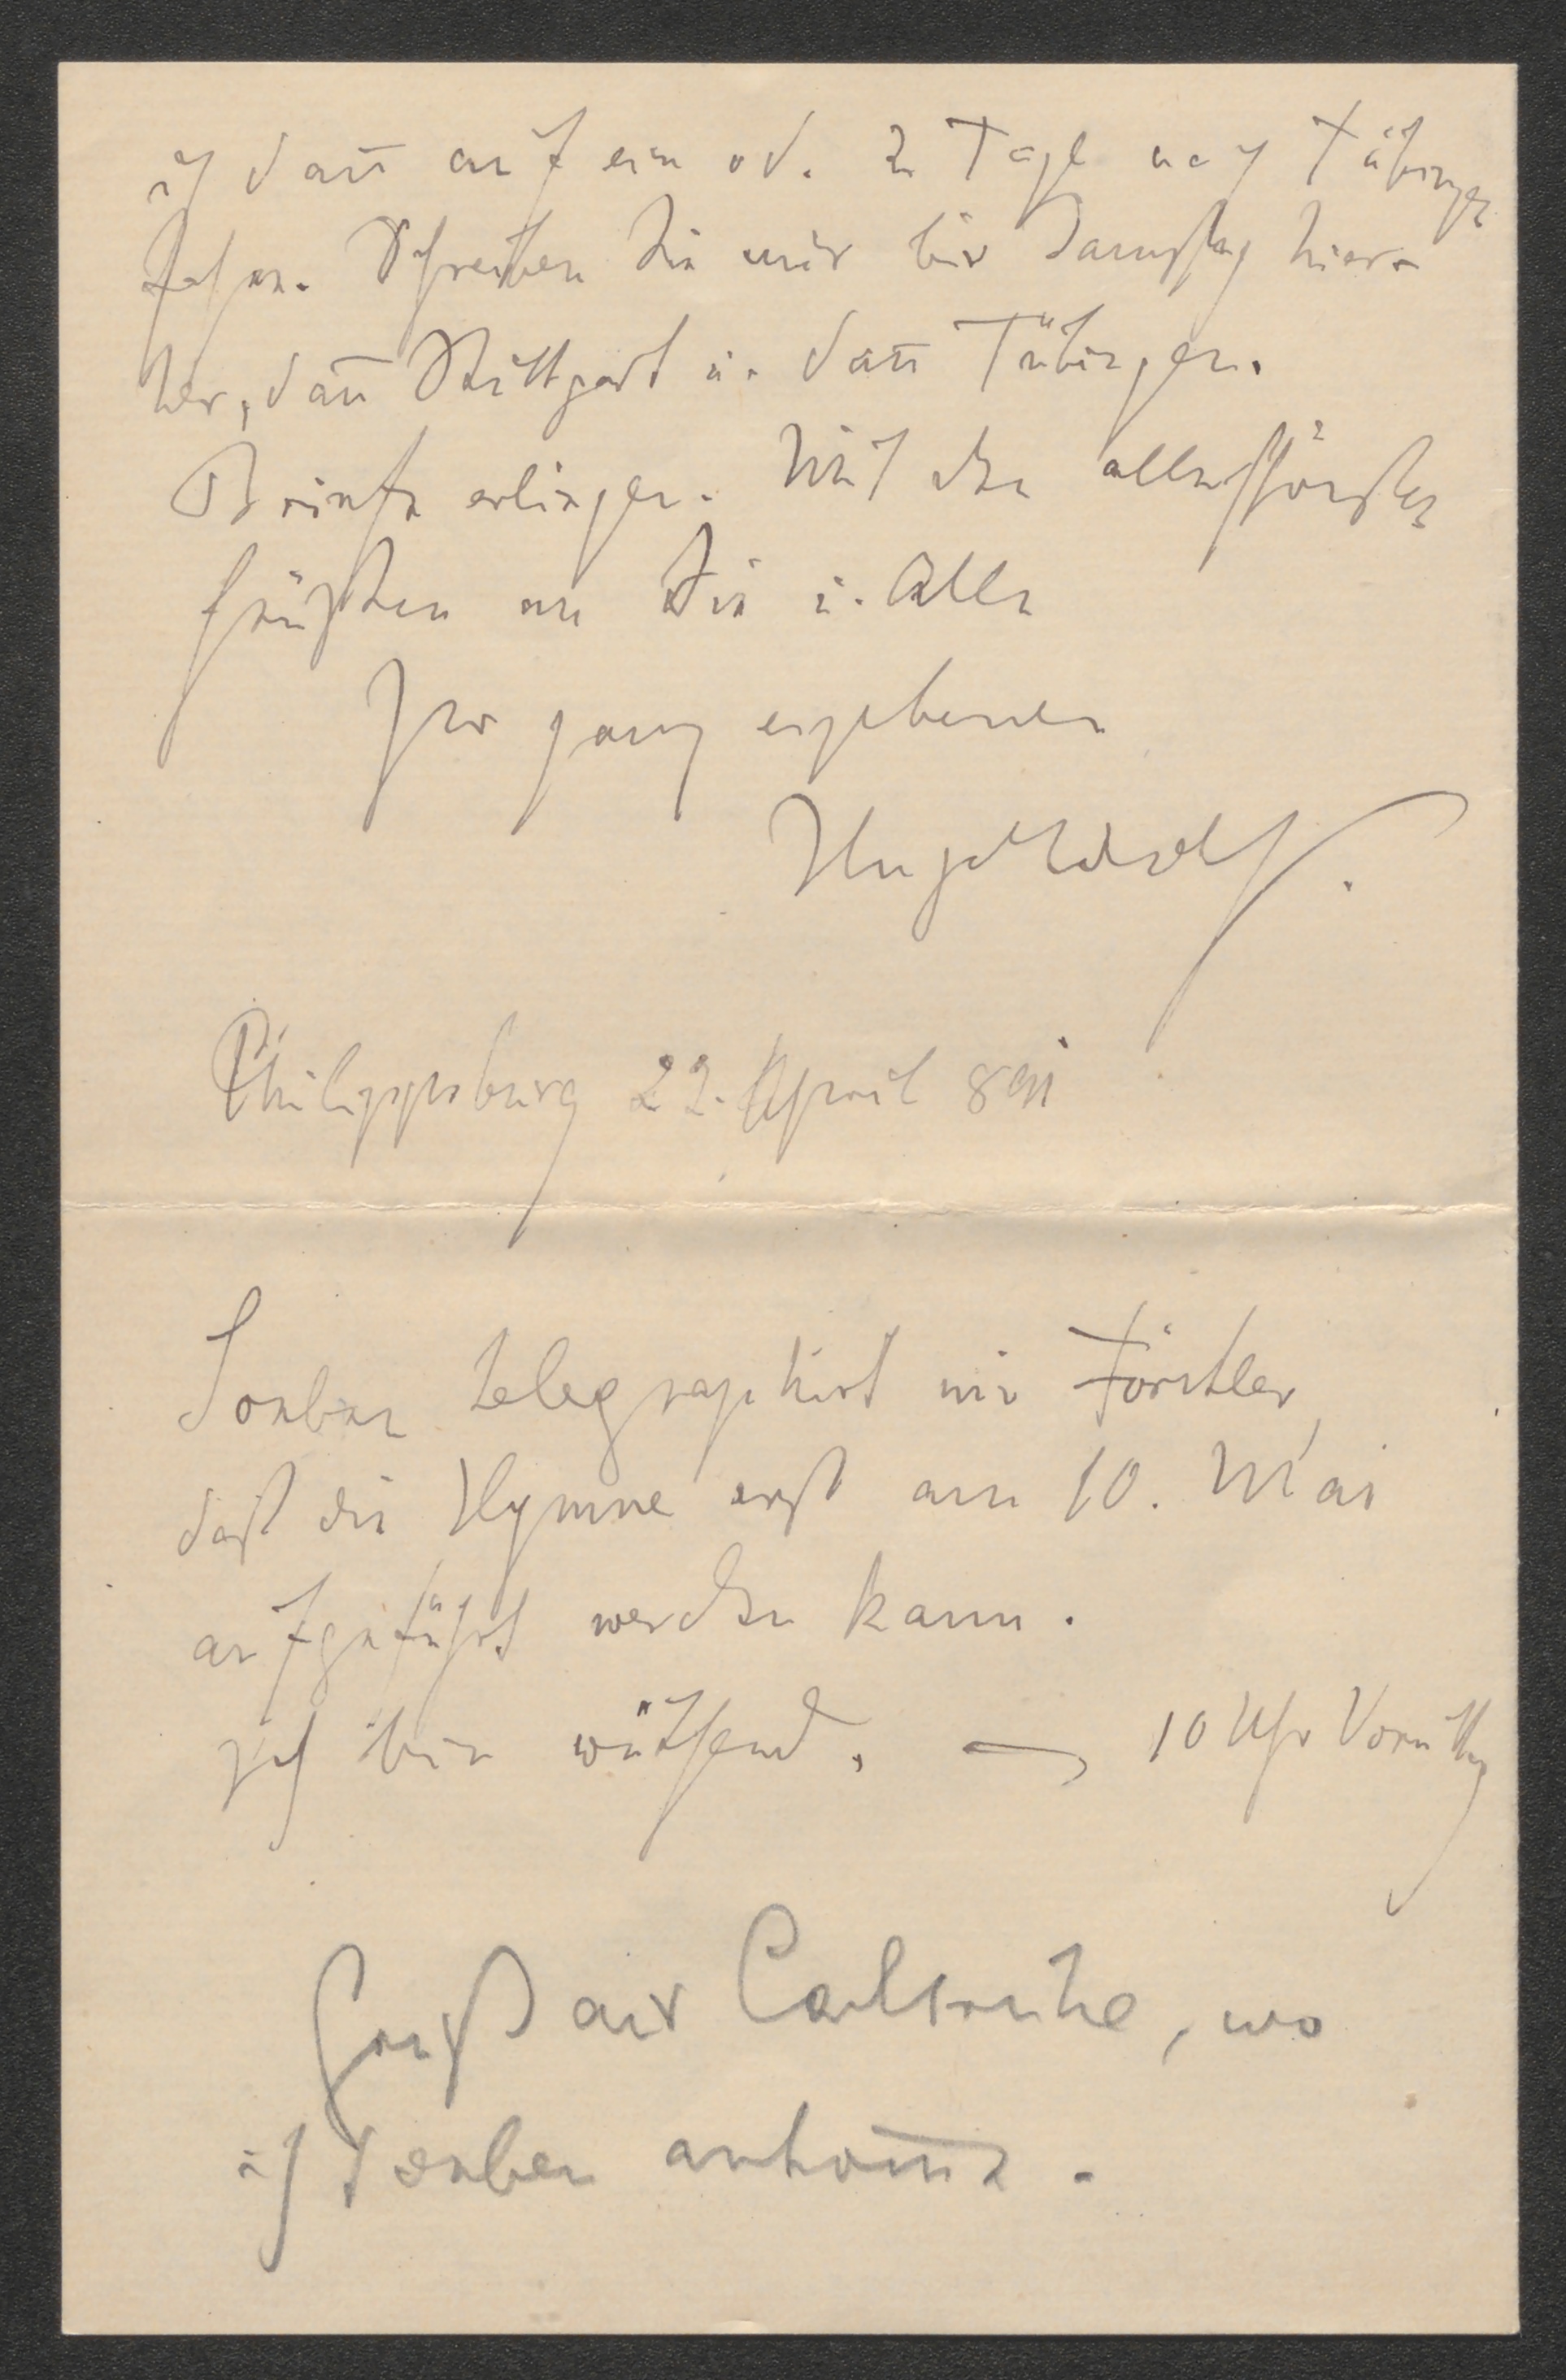 ich dañ auf ein od. 2 Tage nach Tübingen
gehe. Schreiben Sie mir bis Samstag hier-
her, dañ Stuttgart u. dañ Tübingen.
Briefe erliegen. Mit den allerschönsten
Grüßen an Sie u. Alle
Ihr ganz ergebener
Hugo Wolf.
Philippsburg 22. April 891
Soeben telegraphirt mir Förstler,
daß die Hymne erst am 10. Mai
aufgeführt werden kann.
Ich bin wüthend. — 10 Uhr Vormittg
Gruß aus Carlsruhe, wo
ich soeben ankom̄e.